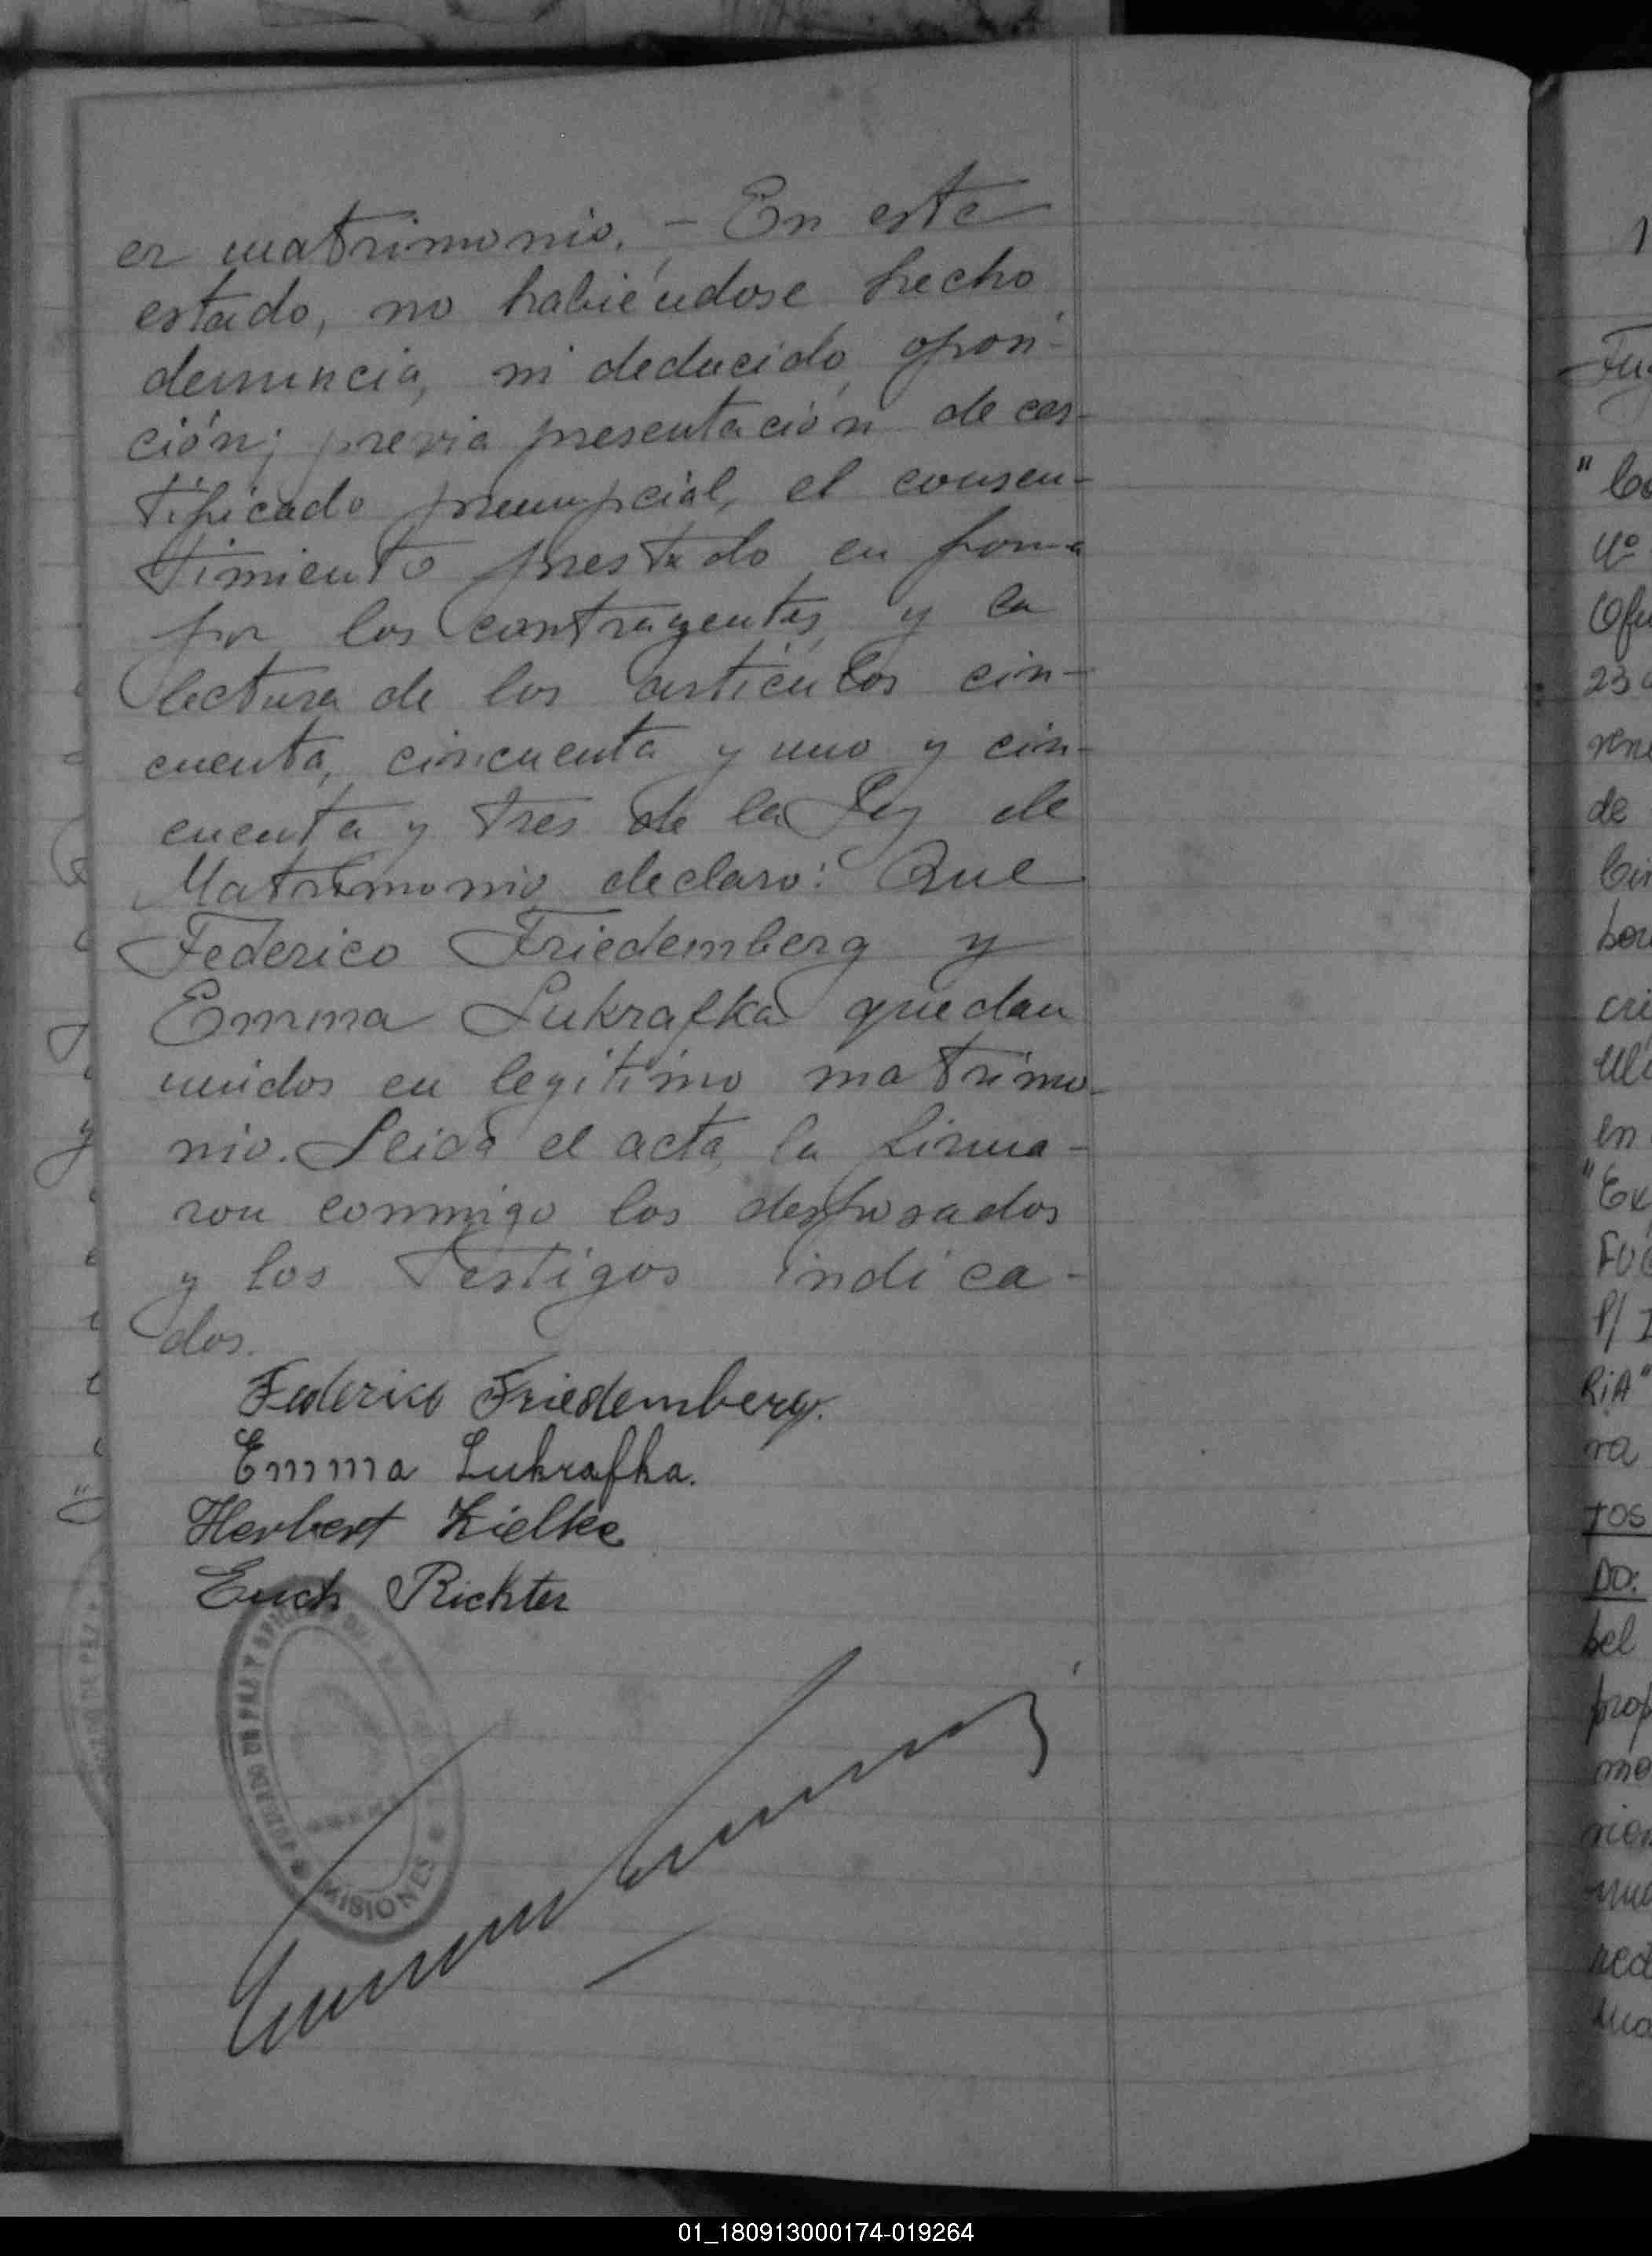 er matrimonio. - En este
estado, no habiéndose hecho
denuncia, ni deducido oposi-
ción; previa presentación de cer-
tificado prenupcial, el consen-
timiento prestado en forma
por los contrayentes y la
lectura de los artículos cin-
cuenta, cincuenta y uno y cin-
cuenta y tres de la Ley de
Matrimonio, declaro: Que
Federico Friedemberg y
Emma Lukrafka quedan
unidos en legítimo matrimo-
nio. Leida el acta, la firma-
ron conmigo los desposados
y los testigos indica-
dos.
Federico Friedemberg.
Emma Lukrafka.
Herbert Zielke
Erich Richter
JUZGADO DE PAZ Y
MISIONES
1
"
Nº
23
de
en
P/
RIA"
TOS
DO:
01_180913000174-019264